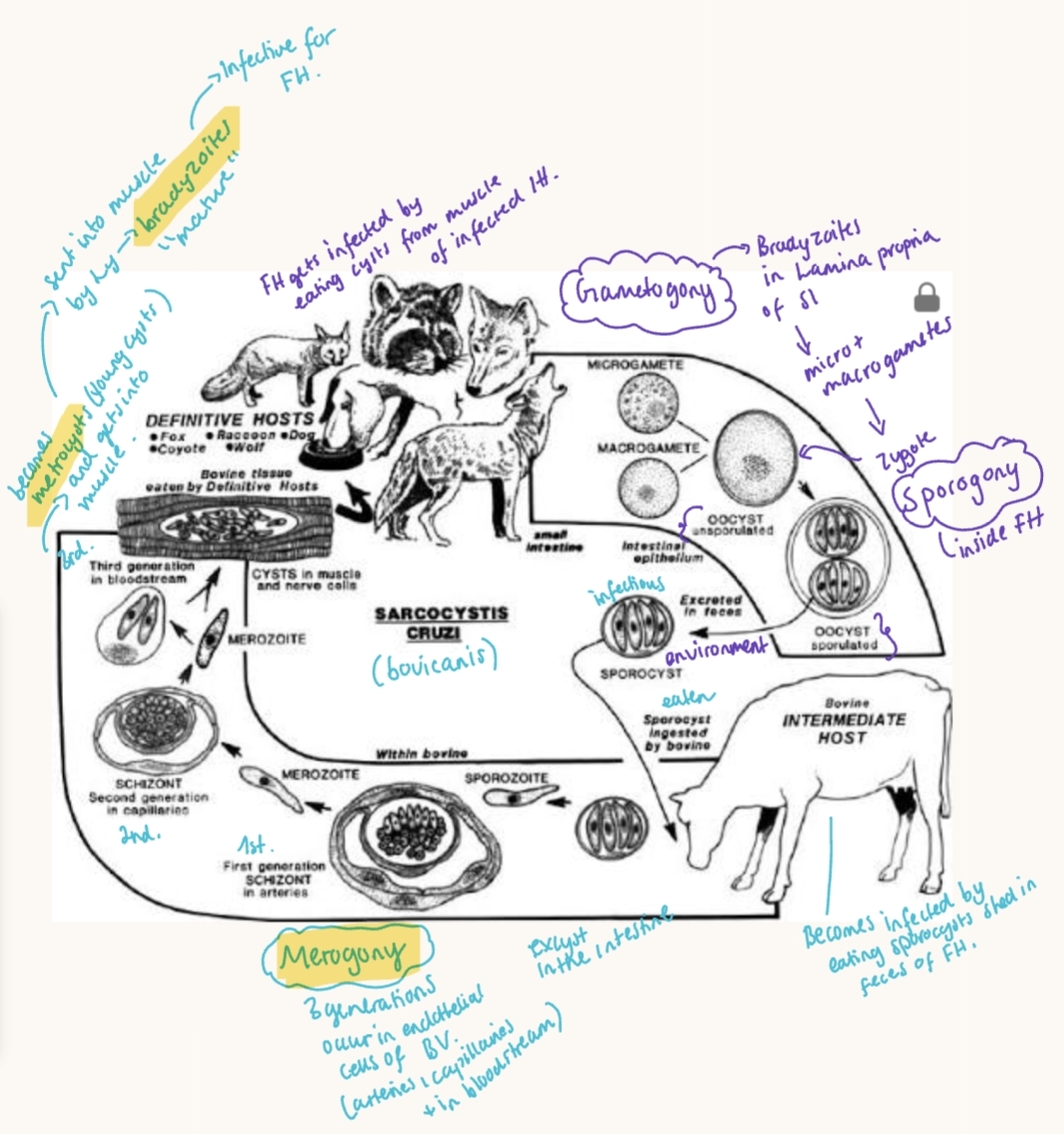 Infective for
FH.
sent into muscle
by Ly → bradyzoites
"mature"
becomes
metrocysts (young cysts)
and gets into
muscle.
3rd.
FH gets infected by
eating cysts from muscle
of infected IH.
Gametogony
Bradyzoites
in Lamina propria
of SI
micro +
macrogametes
zygote
Sporogony
inside FH
MICROGAMETE
MACROGAMETE
OOCYST
unsporulated
Intestinal
epithelium
small
intestine
DEFINITIVE HOSTS
• Fox • Raccoon • Dog
• Coyote • Wolf
Bovine tissue
eaten by Definitive Hosts
Third generation
in bloodstream
CYSTS in muscle
and nerve cells
MEROZOITE
SARCOCYSTIS
CRUZI
(bovicanis)
infectious
Excreted
in feces
environment
SPOROCYST
OOCYST
sporulated
eaten
Sporocyst
ingested
by bovine
Bovine
INTERMEDIATE
HOST
Within bovine
SCHIZONT
Second generation
in capillaries
2nd.
MEROZOITE
SPOROZOITE
1st.
First generation
SCHIZONT
in arteries
Merogony
3 generations
occur in endothelial
cells of BV.
(arteries, capillaries
+ in bloodstream)
Excyst
in the intestine
Becomes infected by
eating sporocysts shed in
feces of FH.